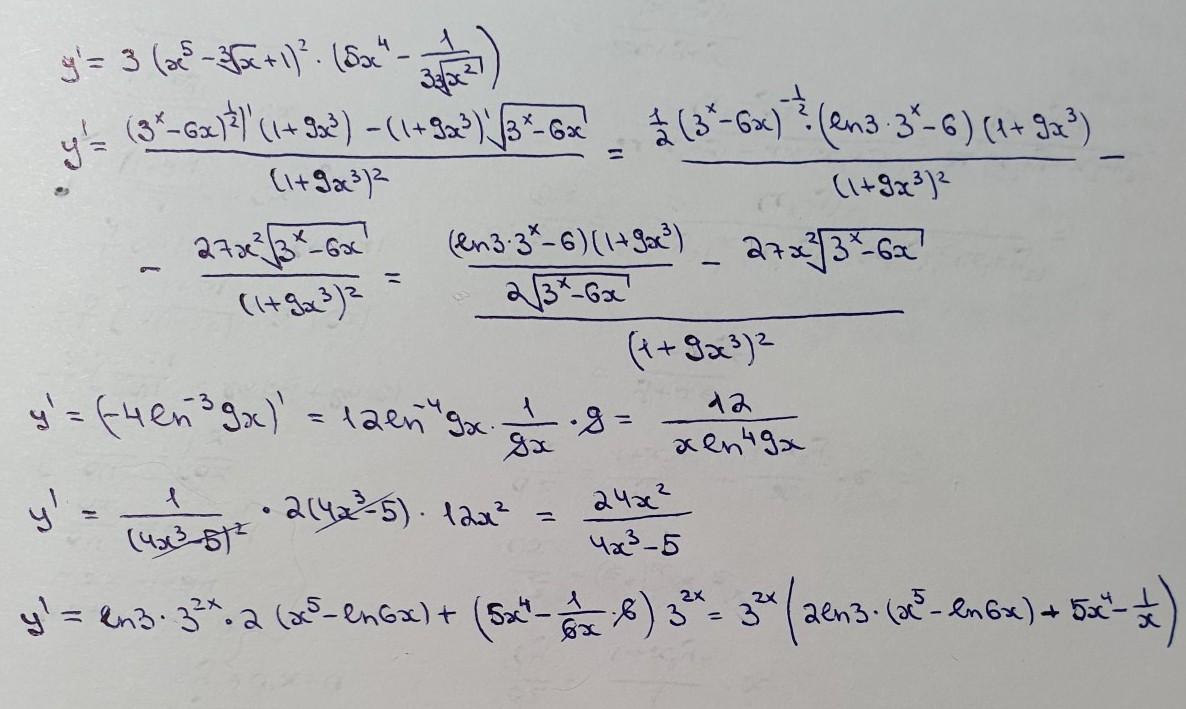 y' = 3 (x⁵ - ∛x + 1)² · (5x⁴ - 1/(3∛x²))
y' = ((3ˣ - 6x)^(1/2))' (1 + 9x³) - (1 + 9x³)' √(3ˣ - 6x) / (1 + 9x³)² = 1/2 (3ˣ - 6x)^(-1/2) · (ln3 · 3ˣ - 6) (1 + 9x³) / (1 + 9x³)² -
- 27x² √(3ˣ - 6x) / (1 + 9x³)² = ((ln3 · 3ˣ - 6)(1 + 9x³) / (2√(3ˣ - 6x)) - 27x² √(3ˣ - 6x)) / (1 + 9x³)²
y' = (-4 ln⁻³ 9x)' = 12 ln⁻⁴ 9x · 1/(9x) · 9 = 12 / (x ln⁴ 9x)
y' = 1/(4x³ - 5)² · 2(4x³ - 5) · 12x² = 24x² / (4x³ - 5)
y' = ln3 · 3²ˣ · 2 (x⁵ - ln6x) + (5x⁴ - 1/(6x) · 6) 3²ˣ = 3²ˣ (2ln3 · (x⁵ - ln6x) + 5x⁴ - 1/x)